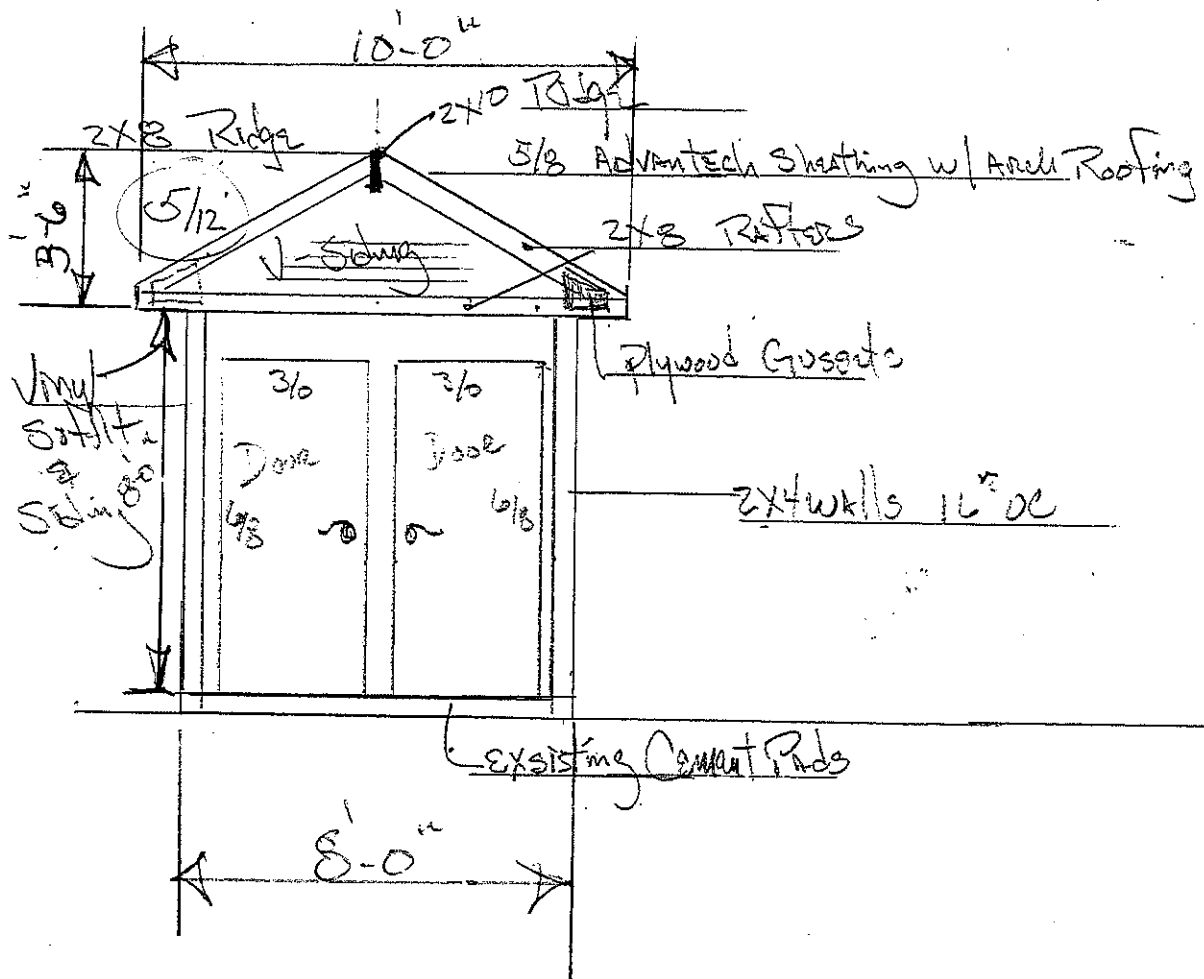 10'-0"
2X10 Ridge
2X8 Ridge
5/8 Advantech Sheathing w/ Arch Roofing
3'-6"
5/12
2X8 Rafters
V-Siding
Plywood Gussets
Vinyl
&
Siding
8'0
3/0
3/0
Door
Door
6/8
6/8
2X4 walls 16" OC
Exsisting Cement Pads
8'-0"